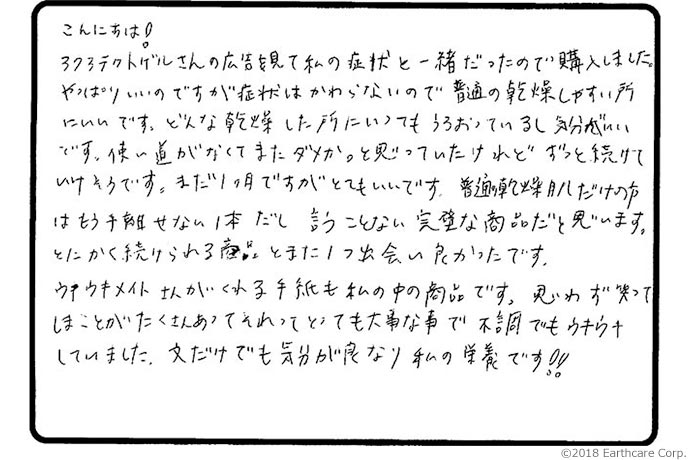 こんにちは!
ヨクヨテクトゲルさんの広告を見て私の症状と一緒だったので購入しました。
やっぱりいいのですが症状はかわらないので普通の乾燥しやすい所
にいいです。どんな乾燥した所にいってもうるおっているし気分がいい
です。使い道がなくてまたダメか。と思っていたけれどずっと続けて
いけそうです。まだ1ヶ月ですがとてもいいです。普通の乾燥肌だけの方
はもう手離せない1本だし言うことない完璧な商品だと思います。
とにかく続けられる商品とまた1つ出会い良かったです。
ウキウキメイトさんがくれる手紙も私の中の商品です。思わず笑って
しまことがたくさんあってそれってとっても大事な事で不調でもウキウキ
していました。文だけでも気分が良なり私の栄養です!!
©2018 Earthcare Corp.